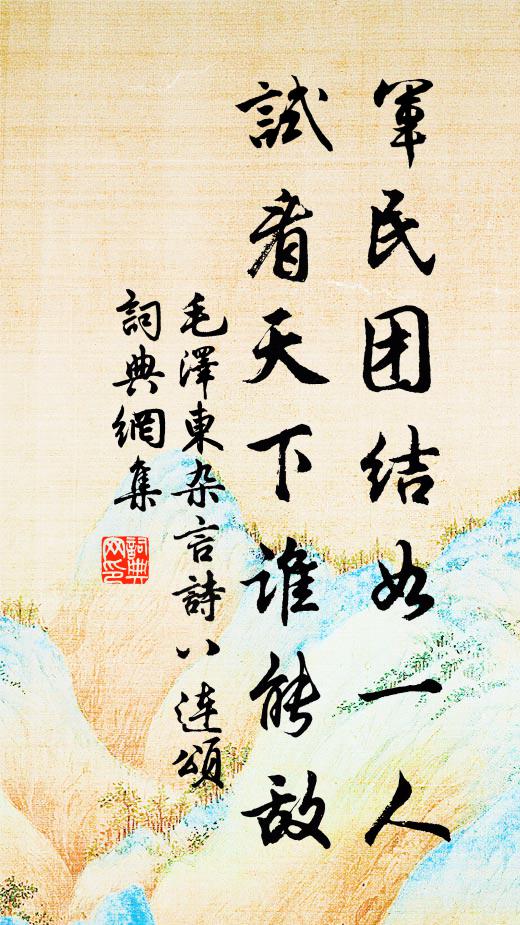 軍民团结如一人
試看天下誰能敌
毛澤東杂言詩八连頌
詞典網集
詞典网印